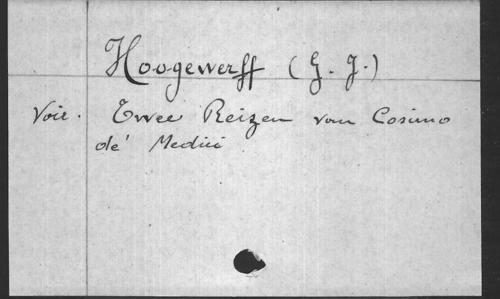 Hoogewerff (G. J.)
Voir. Twee Reizen van Cosimo
de' Medici